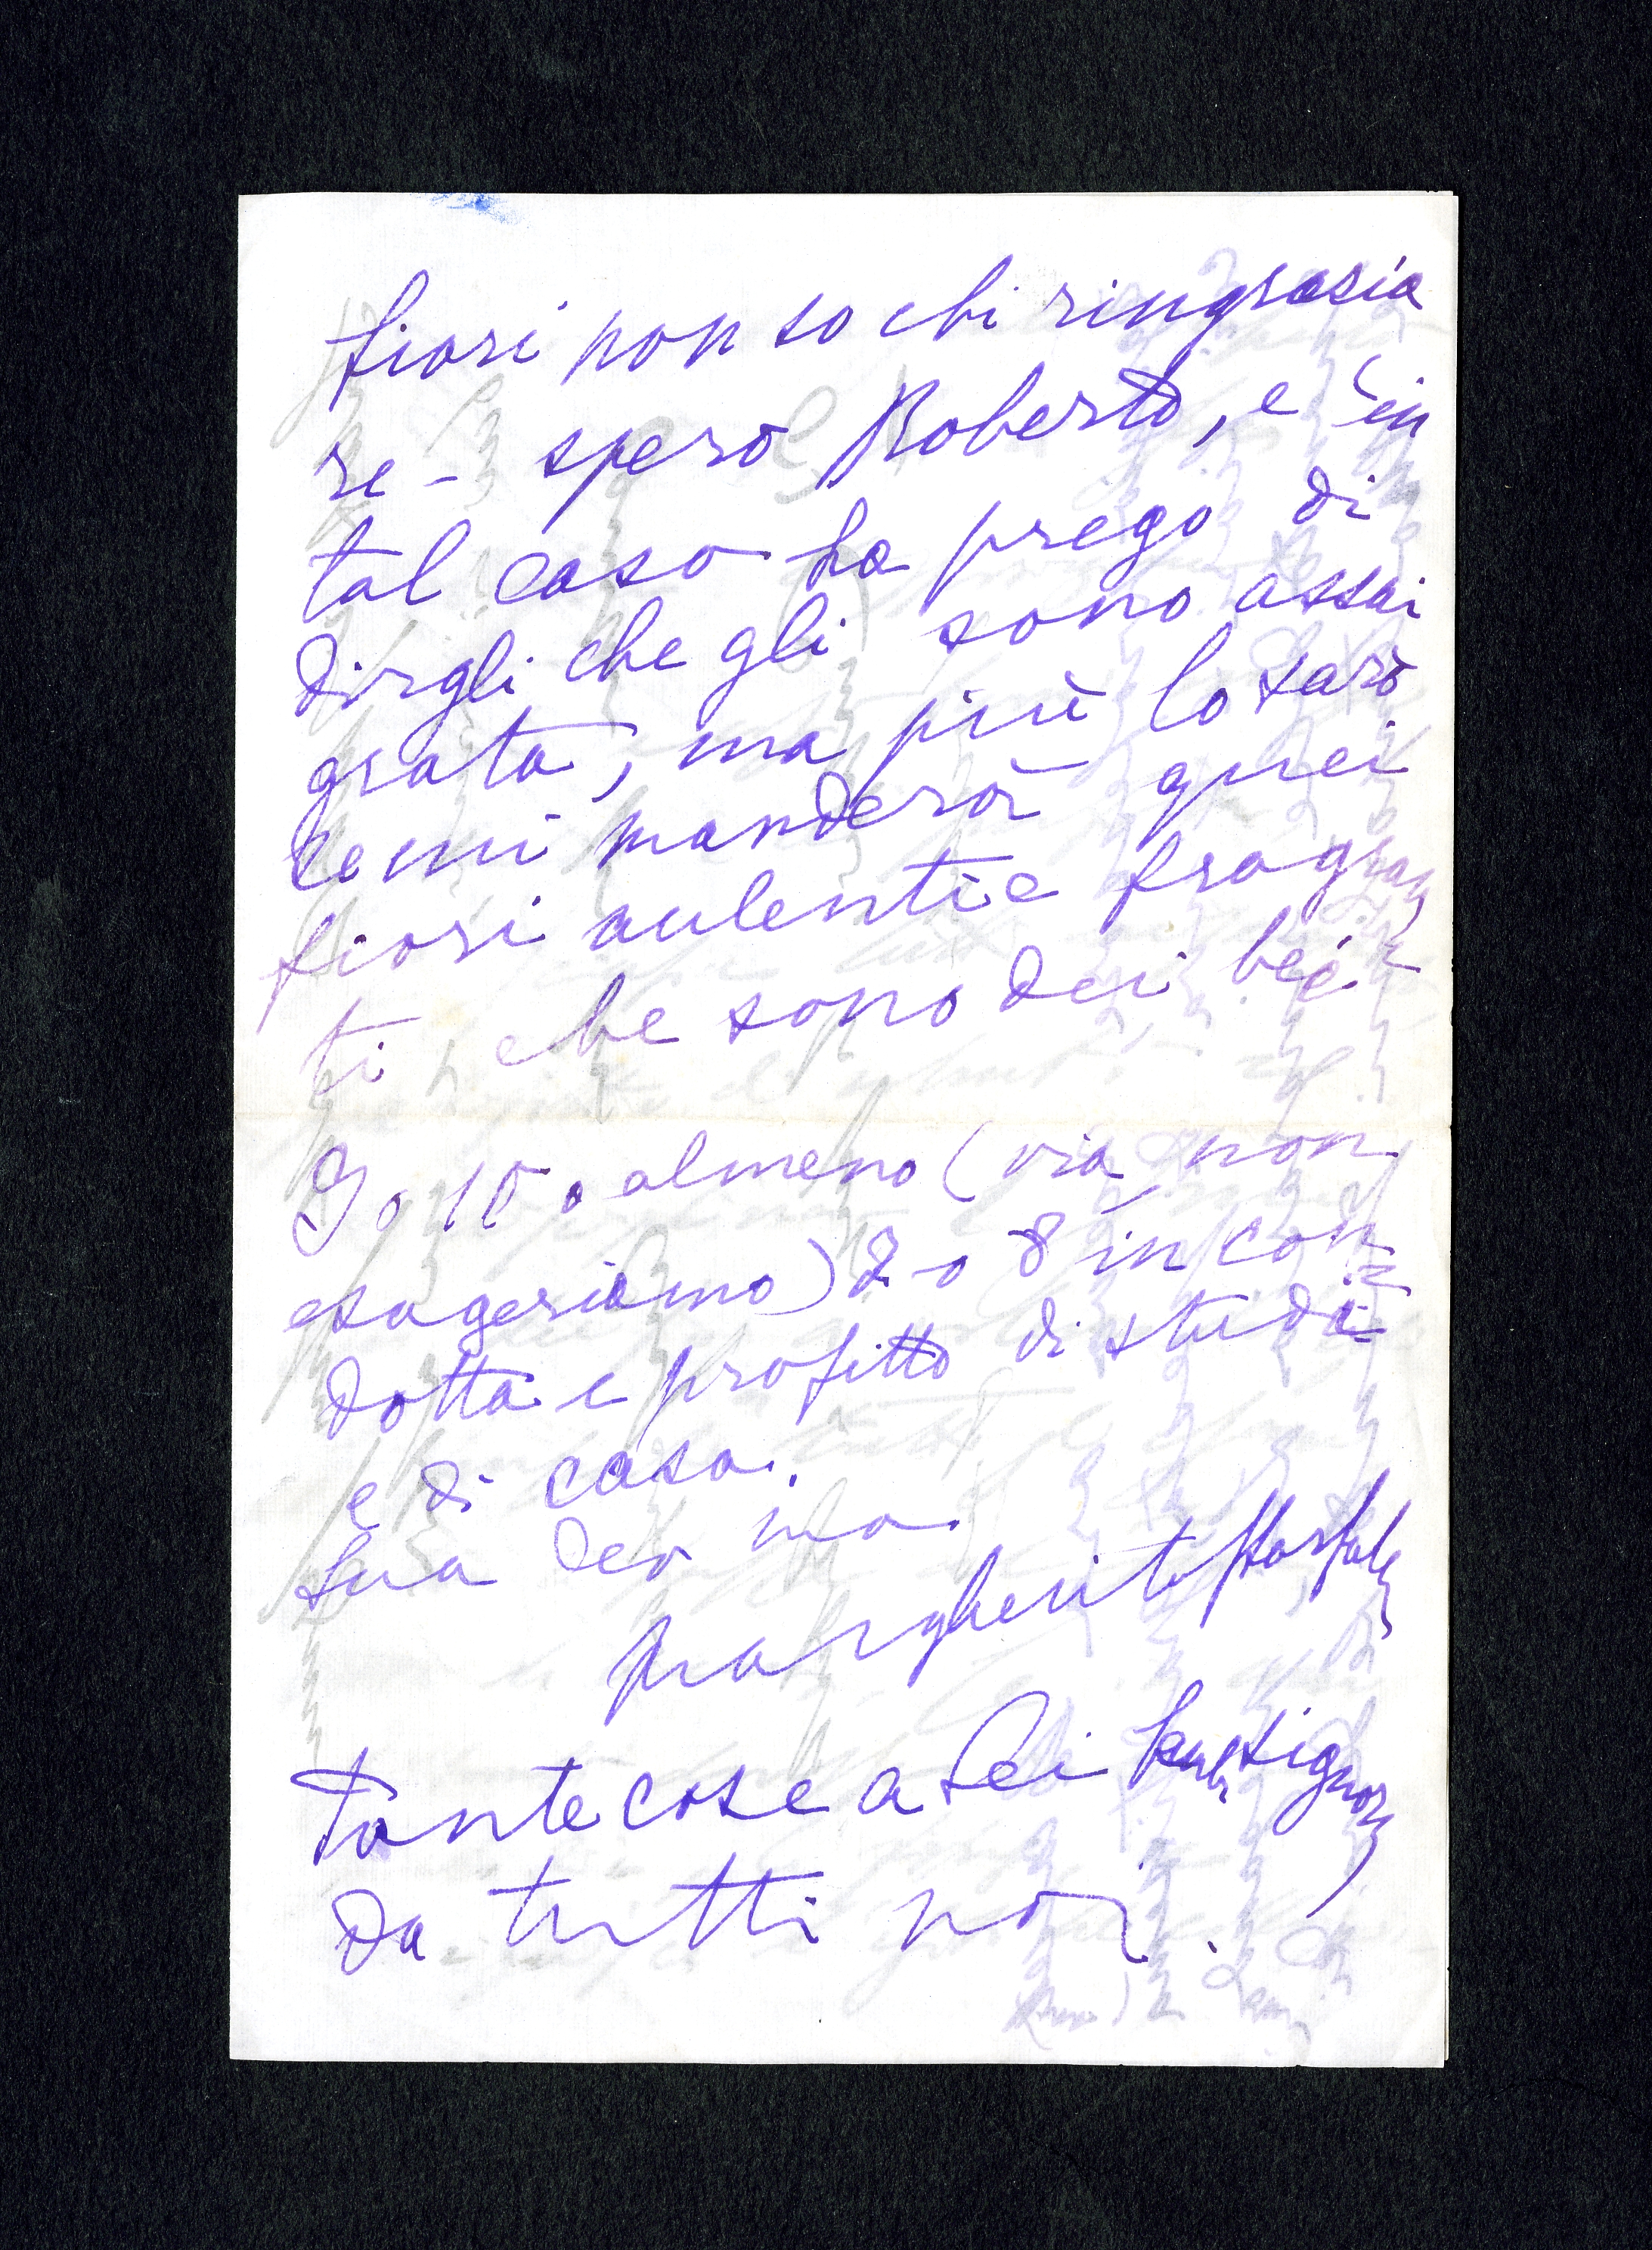 fiori non so chi ringrazia
re - spero Roberto, e in
tal caso La prego di
dirgli che gli sono assai
grata, ma più lo sarò
se mi manderà quei
fiori aulenti e fragran
ti che sono dei bei
9 o 10 o almeno (via non
esageriamo) 7 o 8 in con=
dotta e profitto di studi
e di casa.
Sua dev ma
Margherita Sarfatti
Tante cose a Lei signora
da tutti noi.